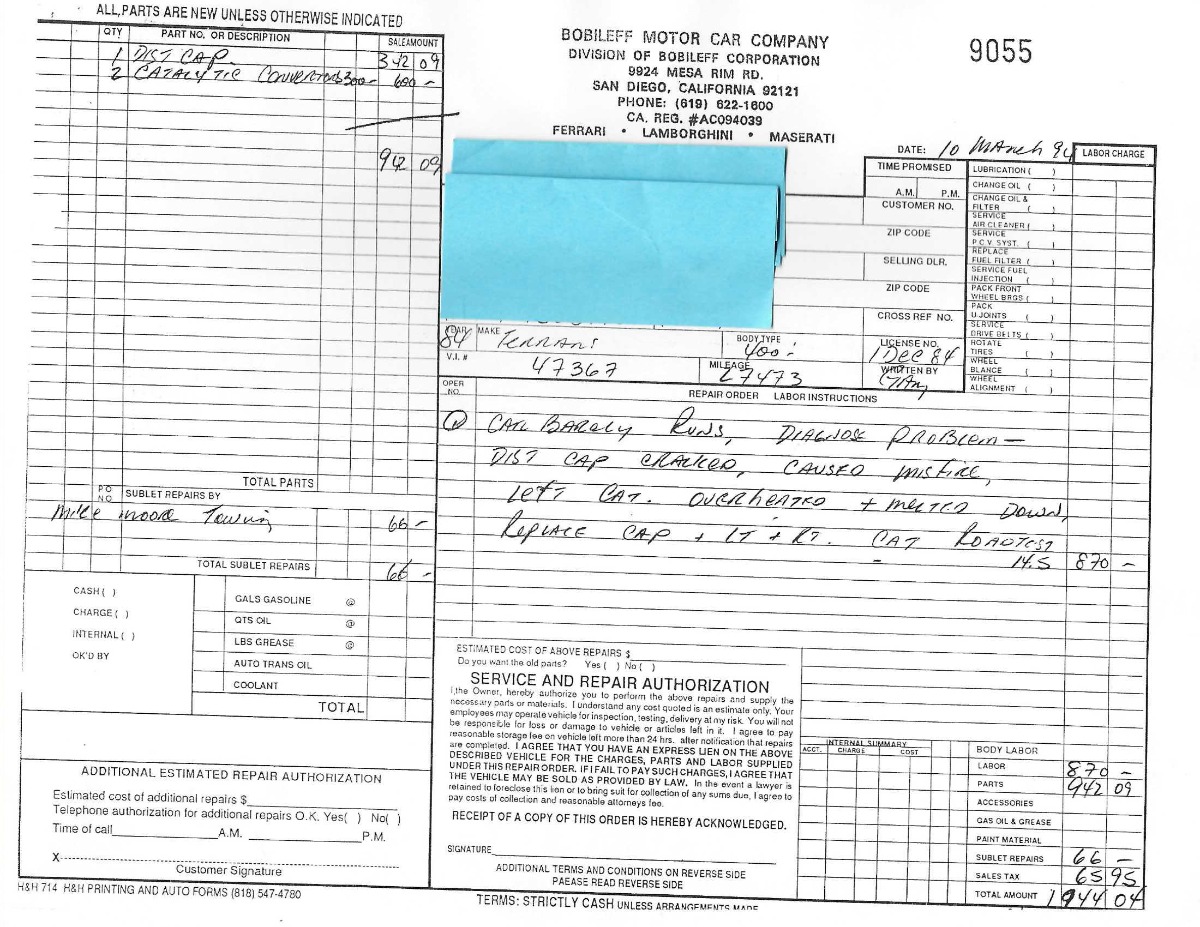 ALL, PARTS ARE NEW UNLESS OTHERWISE INDICATED
QTY PART NO. OR DESCRIPTION SALE AMOUNT
1 DIST CAP 342 09
2 CATALYTIC CONVERTORS 300- 600 -
942 09
TOTAL PARTS
P O NO SUBLET REPAIRS BY
Mike Moore Towing 66 -
TOTAL SUBLET REPAIRS 66 -
CASH ( )
CHARGE ( )
INTERNAL ( )
OK'D BY
GALS GASOLINE @
QTS OIL @
LBS GREASE @
AUTO TRANS OIL
COOLANT
TOTAL
ADDITIONAL ESTIMATED REPAIR AUTHORIZATION
Estimated cost of additional repairs $
Telephone authorization for additional repairs O.K. Yes( ) No( )
Time of call A.M. P.M.
X
Customer Signature
H&H 714 H&H PRINTING AND AUTO FORMS (818) 547-4780
BOBILEFF MOTOR CAR COMPANY
DIVISION OF BOBILEFF CORPORATION
9924 MESA RIM RD.
SAN DIEGO, CALIFORNIA 92121
PHONE: (619) 622-1600
CA. REG. #AC094039
FERRARI • LAMBORGHINI • MASERATI
9055
DATE: 10 March 94
TIME PROMISED
A.M. P.M.
CUSTOMER NO.
ZIP CODE
SELLING DLR.
ZIP CODE
CROSS REF NO.
YEAR MAKE BODY TYPE LICENSE NO.
84 Ferrari 400i 1 Dec 84
V.I. # MILEAGE WRITTEN BY
47367 27473
OPER NO. REPAIR ORDER LABOR INSTRUCTIONS
1 CAR BARELY RUNS, DIAGNOSE PROBLEM —
DIST CAP CRACKED, CAUSED MISFIRE,
LEFT CAT. OVERHEATED + MELTED DOWN,
REPLACE CAP + LT + RT. CAT ROADTEST
14.5 870 -
LABOR CHARGE
LUBRICATION ( )
CHANGE OIL ( )
CHANGE OIL & FILTER ( )
SERVICE AIR CLEANER ( )
SERVICE P.C.V. SYST. ( )
REPLACE FUEL FILTER ( )
SERVICE FUEL INJECTION ( )
PACK FRONT WHEEL BRGS ( )
PACK U.JOINTS ( )
SERVICE DRIVE BELTS ( )
ROTATE TIRES ( )
WHEEL BLANCE ( )
WHEEL ALIGNMENT ( )
ESTIMATED COST OF ABOVE REPAIRS $
Do you want the old parts? Yes ( ) No ( )
SERVICE AND REPAIR AUTHORIZATION
I,the Owner, hereby authorize you to perform the above repairs and supply the
necessary parts or materials. I understand any cost quoted is an estimate only. Your
employees may operate vehicle for inspection, testing, delivery at my risk. You will not
be responsible for loss or damage to vehicle or articles left in it. I agree to pay
reasonable storage fee on vehicle left more than 24 hrs. after notification that repairs
are completed. I AGREE THAT YOU HAVE AN EXPRESS LIEN ON THE ABOVE
DESCRIBED VEHICLE FOR THE CHARGES, PARTS AND LABOR SUPPLIED
UNDER THIS REPAIR ORDER. IF I FAIL TO PAY SUCH CHARGES, I AGREE THAT
THE VEHICLE MAY BE SOLD AS PROVIDED BY LAW. In the event a lawyer is
retained to foreclose this lien or to bring suit for collection of any sums due, I agree to
pay costs of collection and reasonable attorneys fee.
RECEIPT OF A COPY OF THIS ORDER IS HEREBY ACKNOWLEDGED.
SIGNATURE
ADDITIONAL TERMS AND CONDITIONS ON REVERSE SIDE
PAEASE READ REVERSE SIDE
TERMS: STRICTLY CASH UNLESS ARRANGEMENTS MADE
INTERNAL SUMMARY
ACCT. CHARGE COST
BODY LABOR
LABOR 870 -
PARTS 942 09
ACCESSORIES
GAS OIL & GREASE
PAINT MATERIAL
SUBLET REPAIRS 66 -
SALES TAX 65 95
TOTAL AMOUNT 1944 04